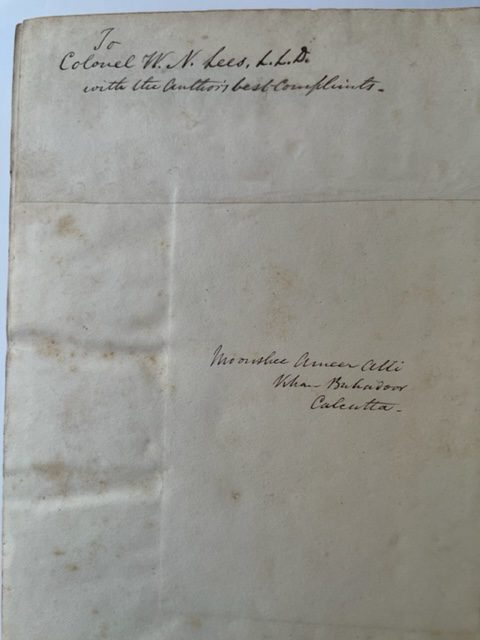 To
Colonel W. N. Lees, L.L.D.
with the Author's best Compliments -
Moonshee Ameer Alli
Khan Buhadoor
Calcutta -